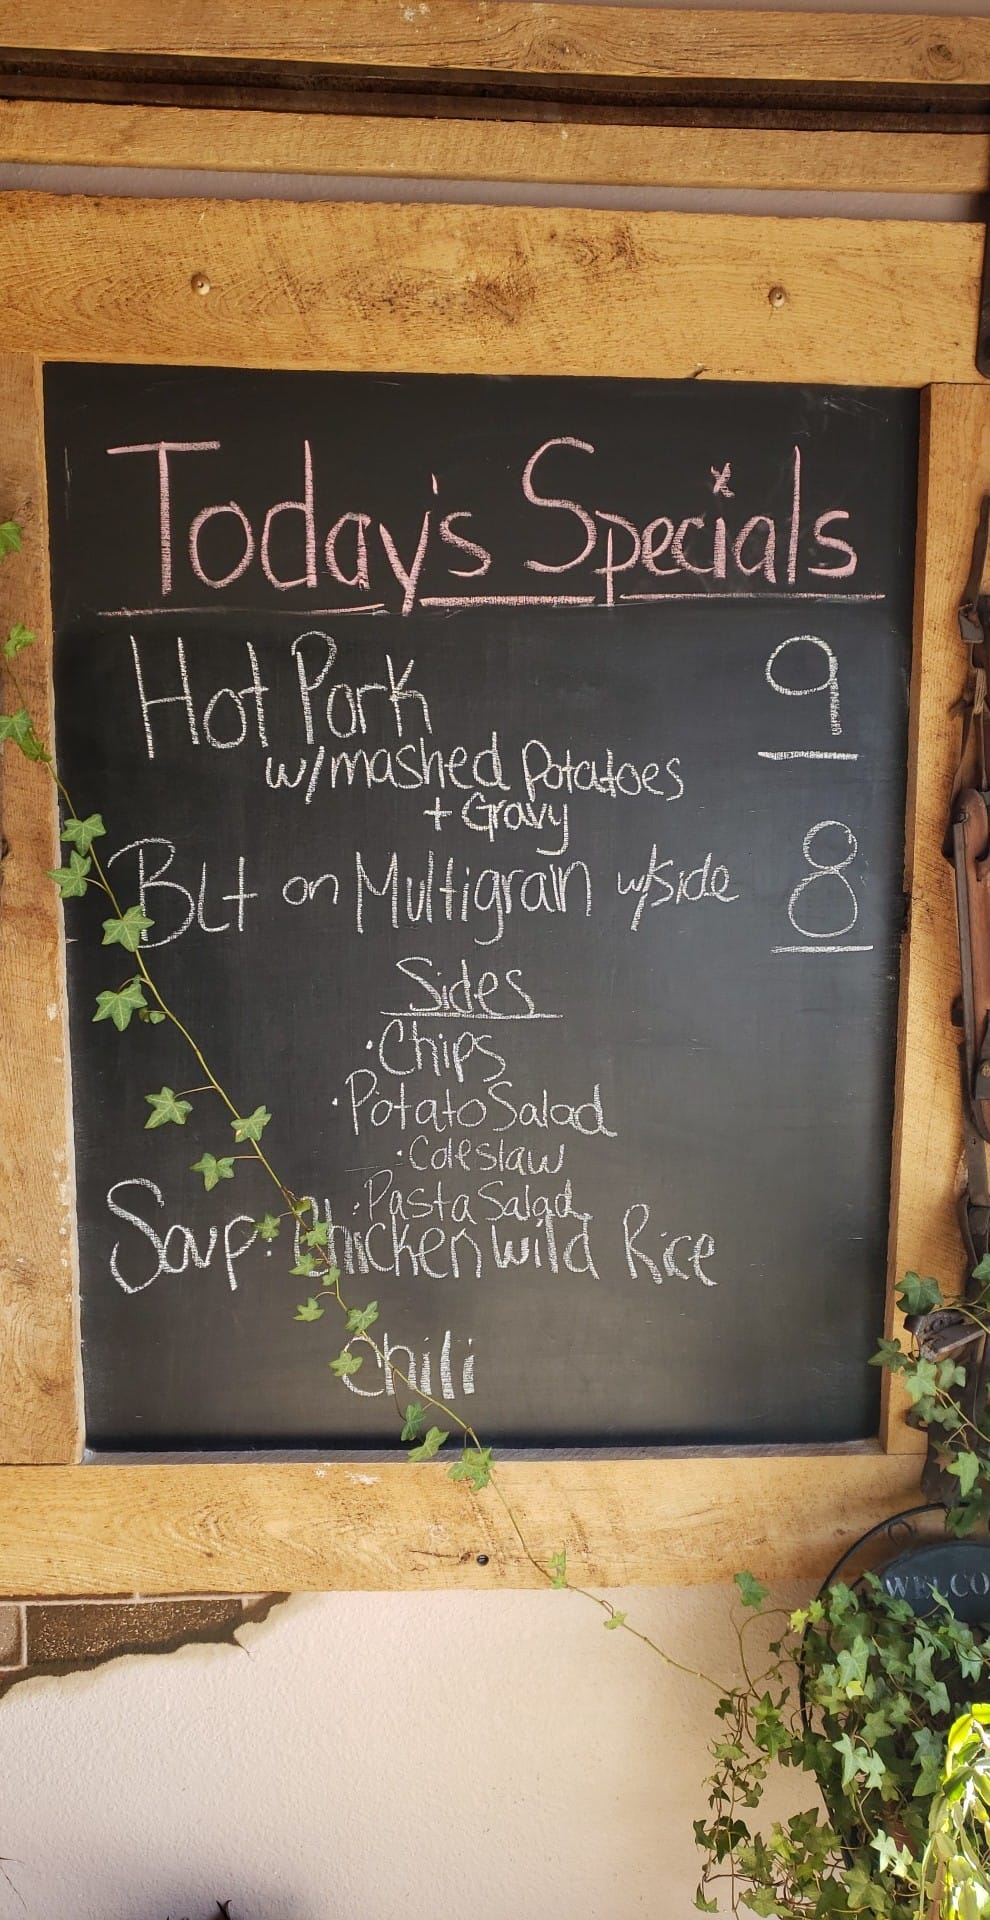 Today's Specials
Hot Pork 9
w/mashed Potatoes
+ Gravy
BLt on Multigrain w/side 8
Sides
· Chips
· Potato Salad
· Coleslaw
· Pasta Salad
Soup: Chicken Wild Rice
Chili
WELCO